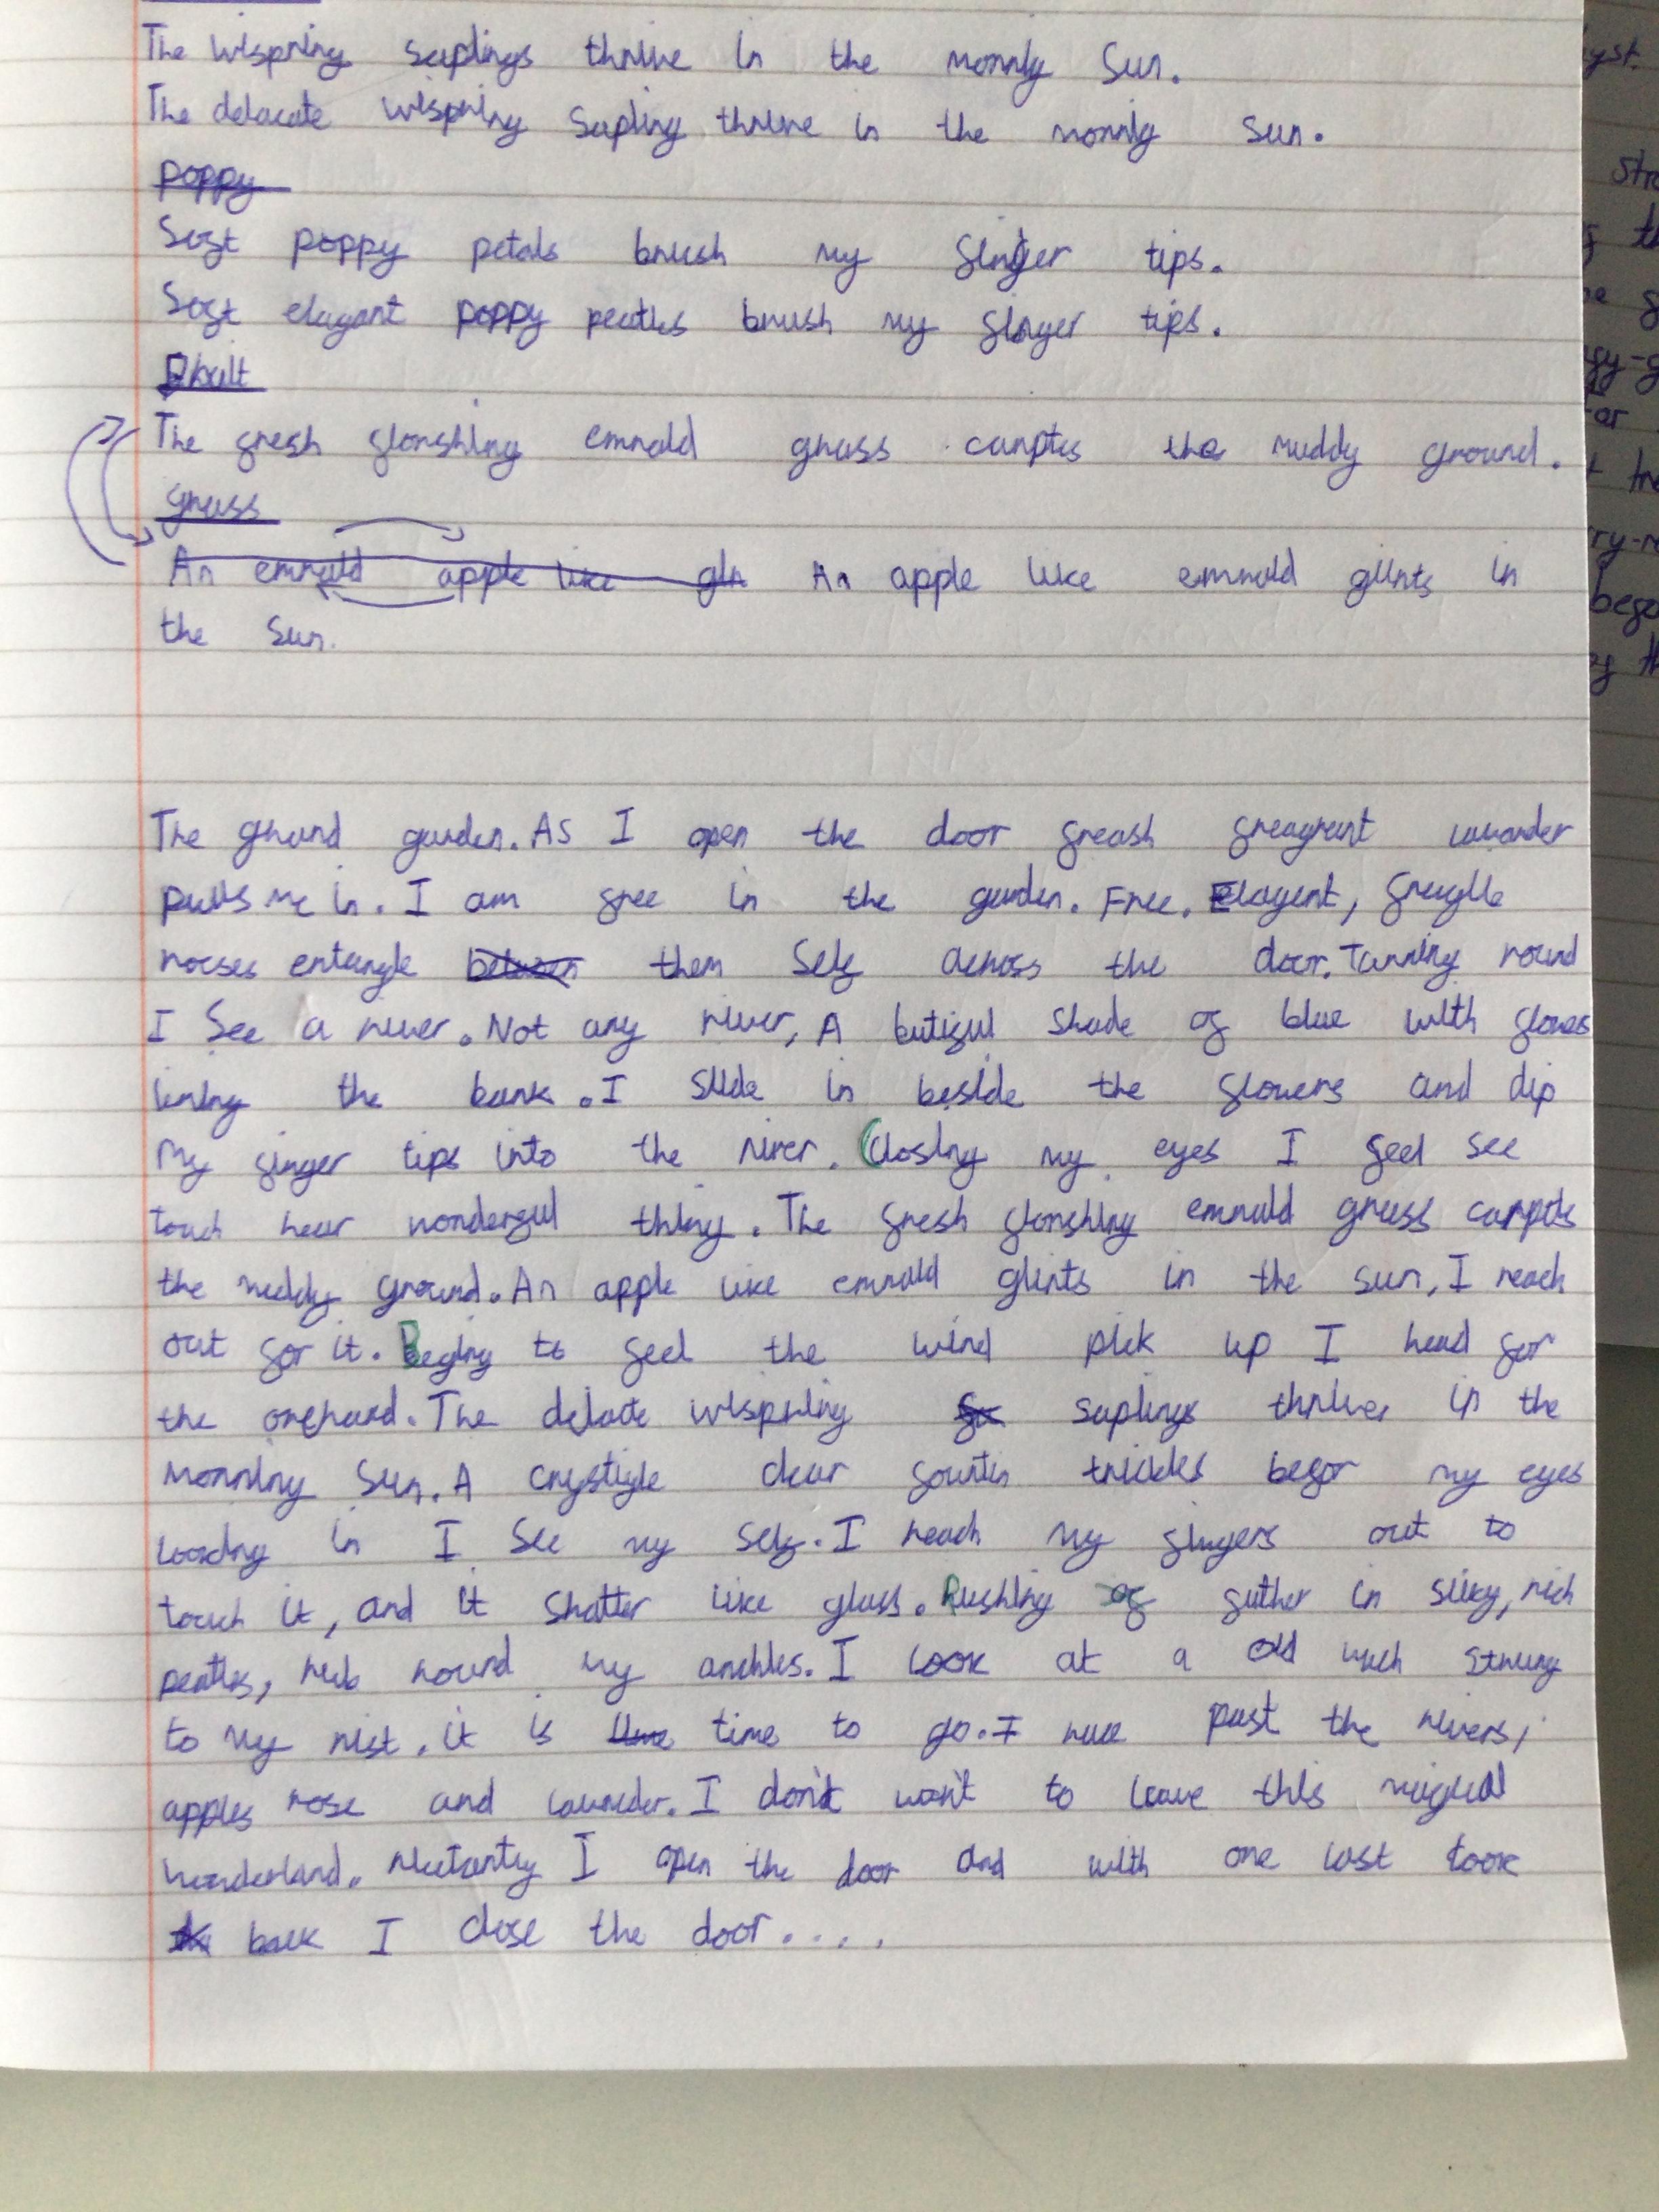 The wispring saplings thrive in the mornig Sun.
The delacate wispring Sapling thrive in the mornig sun.
poppy
Soft poppy petals brush my finger tips.
Soft elagant poppy peatles brush my finger tips.
The fresh florshing emrald grass carptes the muddy ground.
grass
An emrald apple like gln An apple like emrald glints in
the Sun.
The grand garden. As I open the door freash freagrant lavander
pulls me in. I am free in the garden. Free. Elagent, fragile
rocses entangle between them Self across the door. Tarning round
I See a river. Not any river, A butiful Shade of blue with flowes
lining the bank. I slide in beside the flowers and dip
My finger tips into the river. Closing my eyes I feel see
touch hear wonderful thing. The fresh florshing emrald grass carpts
the muddy ground. An apple like emrald glints in the sun, I reach
out for it. Beging to feel the wind pick up I head for
the orchard. The delacte wispring saplings thrives in the
Morning Sun. A crystigle clear fountin trickles befor my eyes
Looking in I See my Self. I reach my fingers out to
touch it, and it Shatter like glass. Rushing of guther in silky, rich
peatles, rub round my anckles. I look at a old wach Strung
to My rist, it is time to go. I race past the rivers,
apples rose and lavneder. I don't wan't to leave this magical
wonderland. Reluctantly I open the door and with one last look
back I close the door....